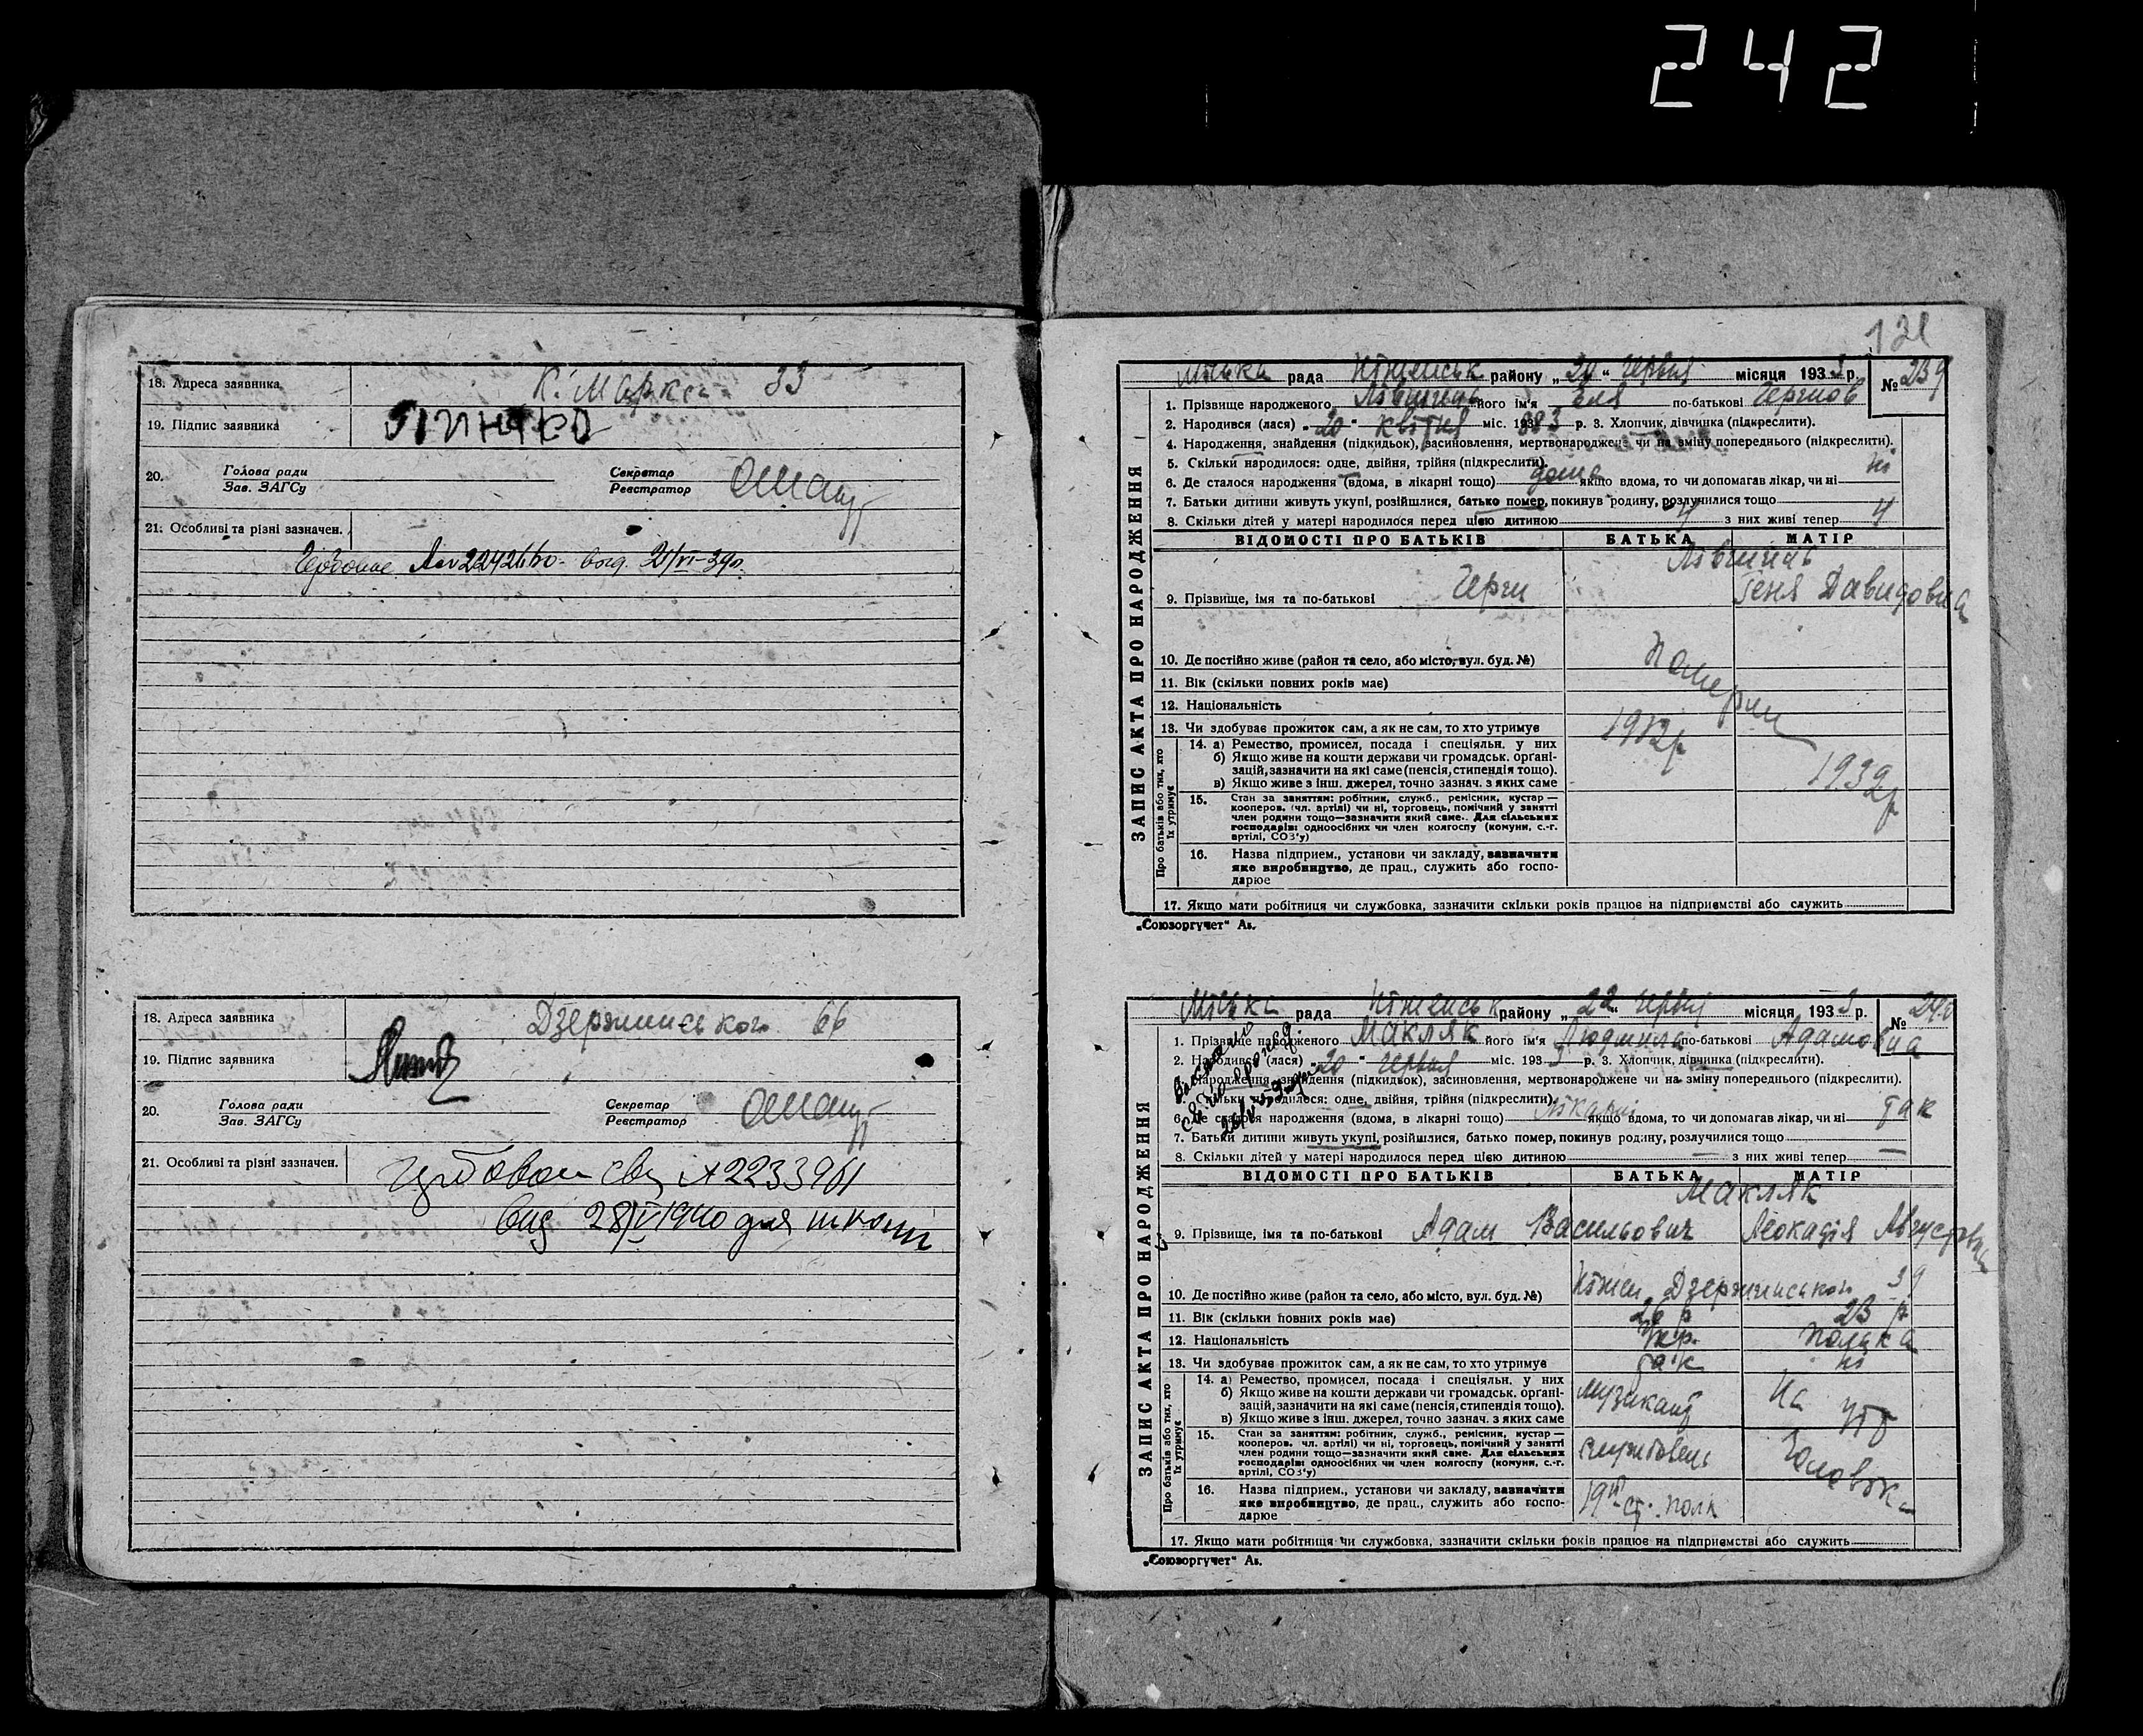 242
18. Адреса заявника К. Маркса 33
19. Підпис заявника
20. Голова ради Секретар
Зав. ЗАГСу Реєстратор
21. Особливі та різні зазначен.
18. Адреса заявника Дзержинського 66
19. Підпис заявника
20. Голова ради Секретар
Зав. ЗАГСу Реєстратор
21. Особливі та різні зазначен.
Вид 28/V 1940 для школи
ЗАПИС АКТА ПРО НАРОДЖЕННЯ
Міська рада Ніженськ району „20“ червня місяця 1933 р. № 239
1. Прізвище народженого його ім'я Еля по-батькові
2. Народився (лася) „20“ квітня міс. 193 р. 3. Хлопчик, дівчинка (підкреслити).
4. Народження, знайдення (підкидьок), засиновлення, мертвонароджене чи на зміну попереднього (підкреслити).
5. Скільки народилося: одне, двійня, трійня (підкреслити).
6. Де сталося народження (вдома, в лікарні тощо) дома якщо вдома, то чи допомагав лікар, чи ні ні
7. Батьки дитини живуть укупі, розійшлися, батько помер, покинув родину, розлучилися тощо
8. Скільки дітей у матері народилося перед цією дитиною 4 з них живі тепер 4
ВІДОМОСТІ ПРО БАТЬКІВ БАТЬКА МАТІР
9. Прізвище, імя та по-батькові Геня Давидовна
10. Де постійно живе (район та село, або місто, вул. буд. №)
11. Вік (скільки повних років має)
12. Національність
13. Чи здобуває прожиток сам, а як не сам, то хто утримує
1932р
1932р
Про батьків або тих, хто їх утримує
14. а) Ремество, промисел, посада і спеціяльн. у них
б) Якщо живе на кошти держави чи громадськ. органі-
зацій, зазначити на які саме (пенсія, стипендія тощо).
в) Якщо живе з інш. джерел, точно зазнач. з яких саме
15. Стан за заняттям: робітник, служб., ремісник, кустар—
кооперов. (чл. артілі) чи ні, торговець, помічний у занятті
член родини тощо—зазначити який саме. Для сільських
господарів: одноосібних чи член колгоспу (комуни, с.-г.
артілі, СОЗ'у)
16. Назва підприєм., установи чи закладу, зазначити
яке виробництво, де прац., служить або госпо-
дарює
17. Якщо мати робітниця чи службовка, зазначити скільки років працює на підприємстві або служить
„Союзоргучет“ Ав.
ЗАПИС АКТА ПРО НАРОДЖЕННЯ
Міська рада Ніженськ району „22“ червня місяця 1933 р. № 240
1. Прізвище народженого Макляк його ім'я Людмила по-батькові Адамовна
2. Народився (лася) „20“ червня міс. 1933 р. 3. Хлопчик, дівчинка (підкреслити).
4. Народження, знайдення (підкидьок), засиновлення, мертвонароджене чи на зміну попереднього (підкреслити).
5. Скільки народилося: одне, двійня, трійня (підкреслити).
6. Де сталося народження (вдома, в лікарні тощо) лікарні якщо вдома, то чи допомагав лікар, чи ні так
7. Батьки дитини живуть укупі, розійшлися, батько помер, покинув родину, розлучилися тощо
8. Скільки дітей у матері народилося перед цією дитиною — з них живі тепер —
ВІДОМОСТІ ПРО БАТЬКІВ БАТЬКА МАТІР
Макляк
9. Прізвище, імя та по-батькові Адам Васильович Леокадія Августовна
10. Де постійно живе (район та село, або місто, вул. буд. №) Ніжен Дзержинського 39
11. Вік (скільки повних років має) 26 р 23 р
12. Національність Укр. полька
13. Чи здобуває прожиток сам, а як не сам, то хто утримує так ні
Про батьків або тих, хто їх утримує
14. а) Ремество, промисел, посада і спеціяльн. у них
б) Якщо живе на кошти держави чи громадськ. органі-
зацій, зазначити на які саме (пенсія, стипендія тощо).
в) Якщо живе з інш. джерел, точно зазнач. з яких саме
музикант На утр
15. Стан за заняттям: робітник, служб., ремісник, кустар—
кооперов. чл. артілі) чи ні, торговець, помічний у занятті
член родини тощо—зазначити який саме. Для сільських
господарів: одноосібних чи член колгоспу (комуни, с.-г.
артілі, СОЗ'у)
службовець Чоловіка
16. Назва підприєм., установи чи закладу, зазначити
яке виробництво, де прац., служить або госпо-
дарює
19й ст. полк
17. Якщо мати робітниця чи службовка, зазначити скільки років працює на підприємстві або служить
„Союзоргучет“ Ав.